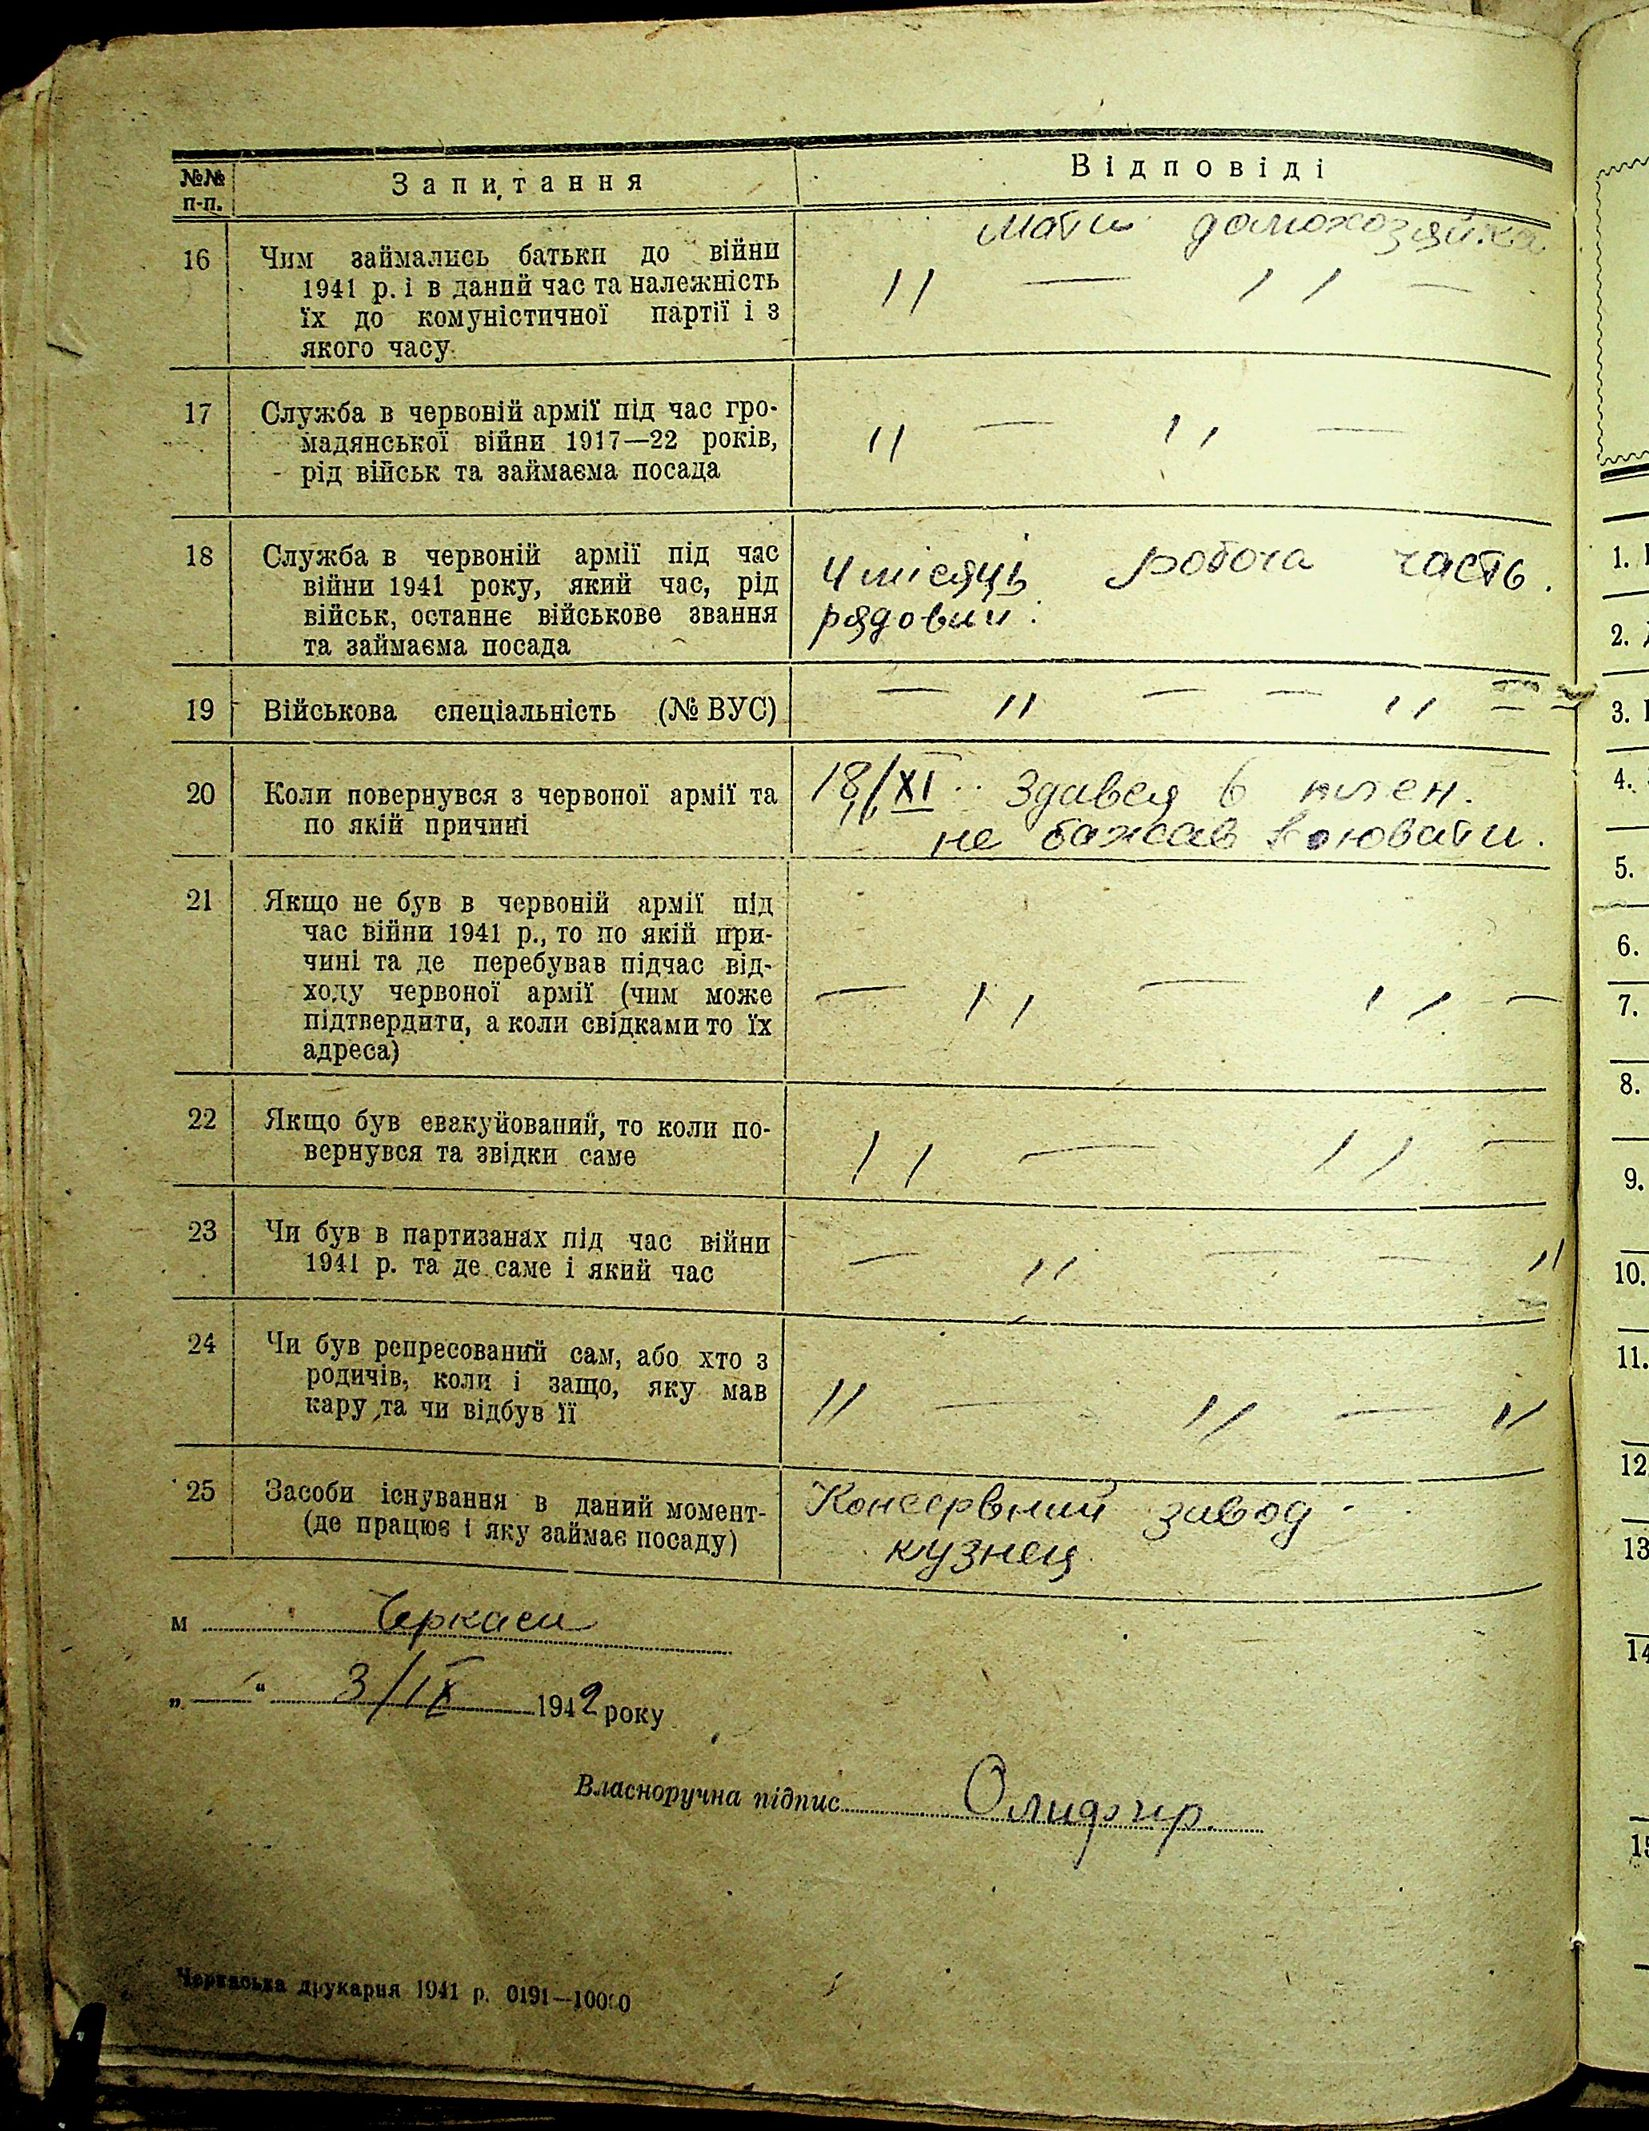 №№ п-п. Запитання Відповіді
16 Чим займались батьки до війни
1941 р. і в даний час та належність
їх до комуністичної партії і з
якого часу
мати домохозяйка
" — " —
17 Служба в червоній армії під час гро-
мадянської війни 1917—22 років,
рід військ та займаєма посада
" — " —
18 Служба в червоній армії під час
війни 1941 року, який час, рід
військ, останнє військове звання
та займаєма посада
4 місяців робоча часть.
рядовий.
19 Військова спеціальність (№ ВУС)
— " — — " —
20 Коли повернувся з червоної армії та
по якій причині
18/XI Здався в плен.
не бажав воювати.
21 Якщо не був в червоній армії під
час війни 1941 р., то по якій при-
чині та де перебував підчас від-
ходу червоної армії (чим може
підтвердити, а коли свідками то їх
адреса)
— " — " —
22 Якщо був евакуйований, то коли по-
вернувся та звідки саме
" — " —
23 Чи був в партизанах під час війни
1941 р. та де саме і який час
— " — — "
24 Чи був репресований сам, або хто з
родичів, коли і защо, яку мав
кару та чи відбув її
" — " — "
25 Засоби існування в даний момент-
(де працює і яку займає посаду)
Консервний завод
кузнец
м Черкаси
„ — “ 3/IX 1942 року
Власноручна підпис Олифир.
Черкаська друкарня 1941 р. 0191—10000
1.
2.
3.
4.
5.
6.
7.
8.
9.
10.
11.
12
13
14